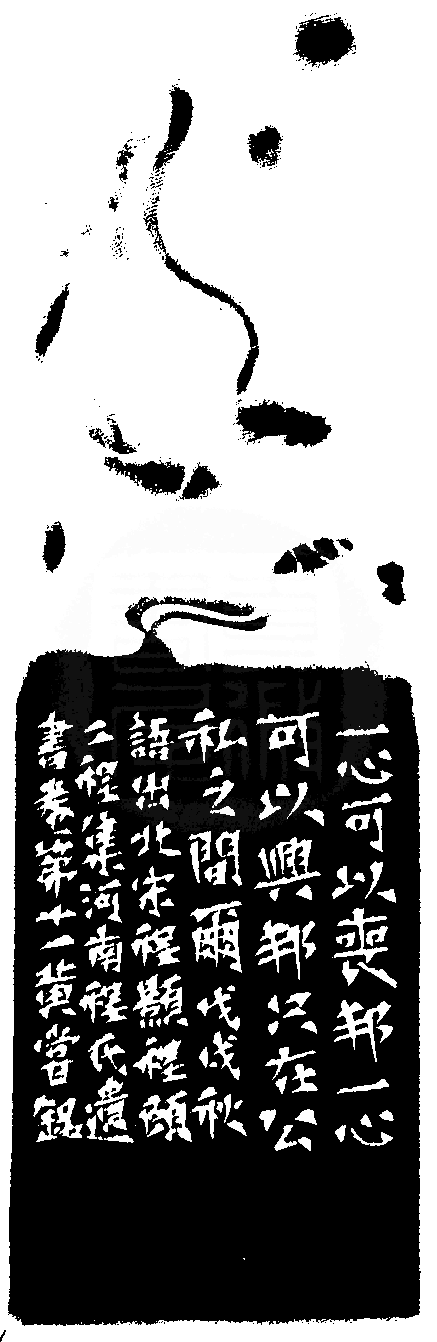 一心可以喪邦一心
可以興邦只在公
私之間爾戊戌秋
語出北宋程顥程頤
二程集河南程氏遺
書卷第十一黃嘗銘